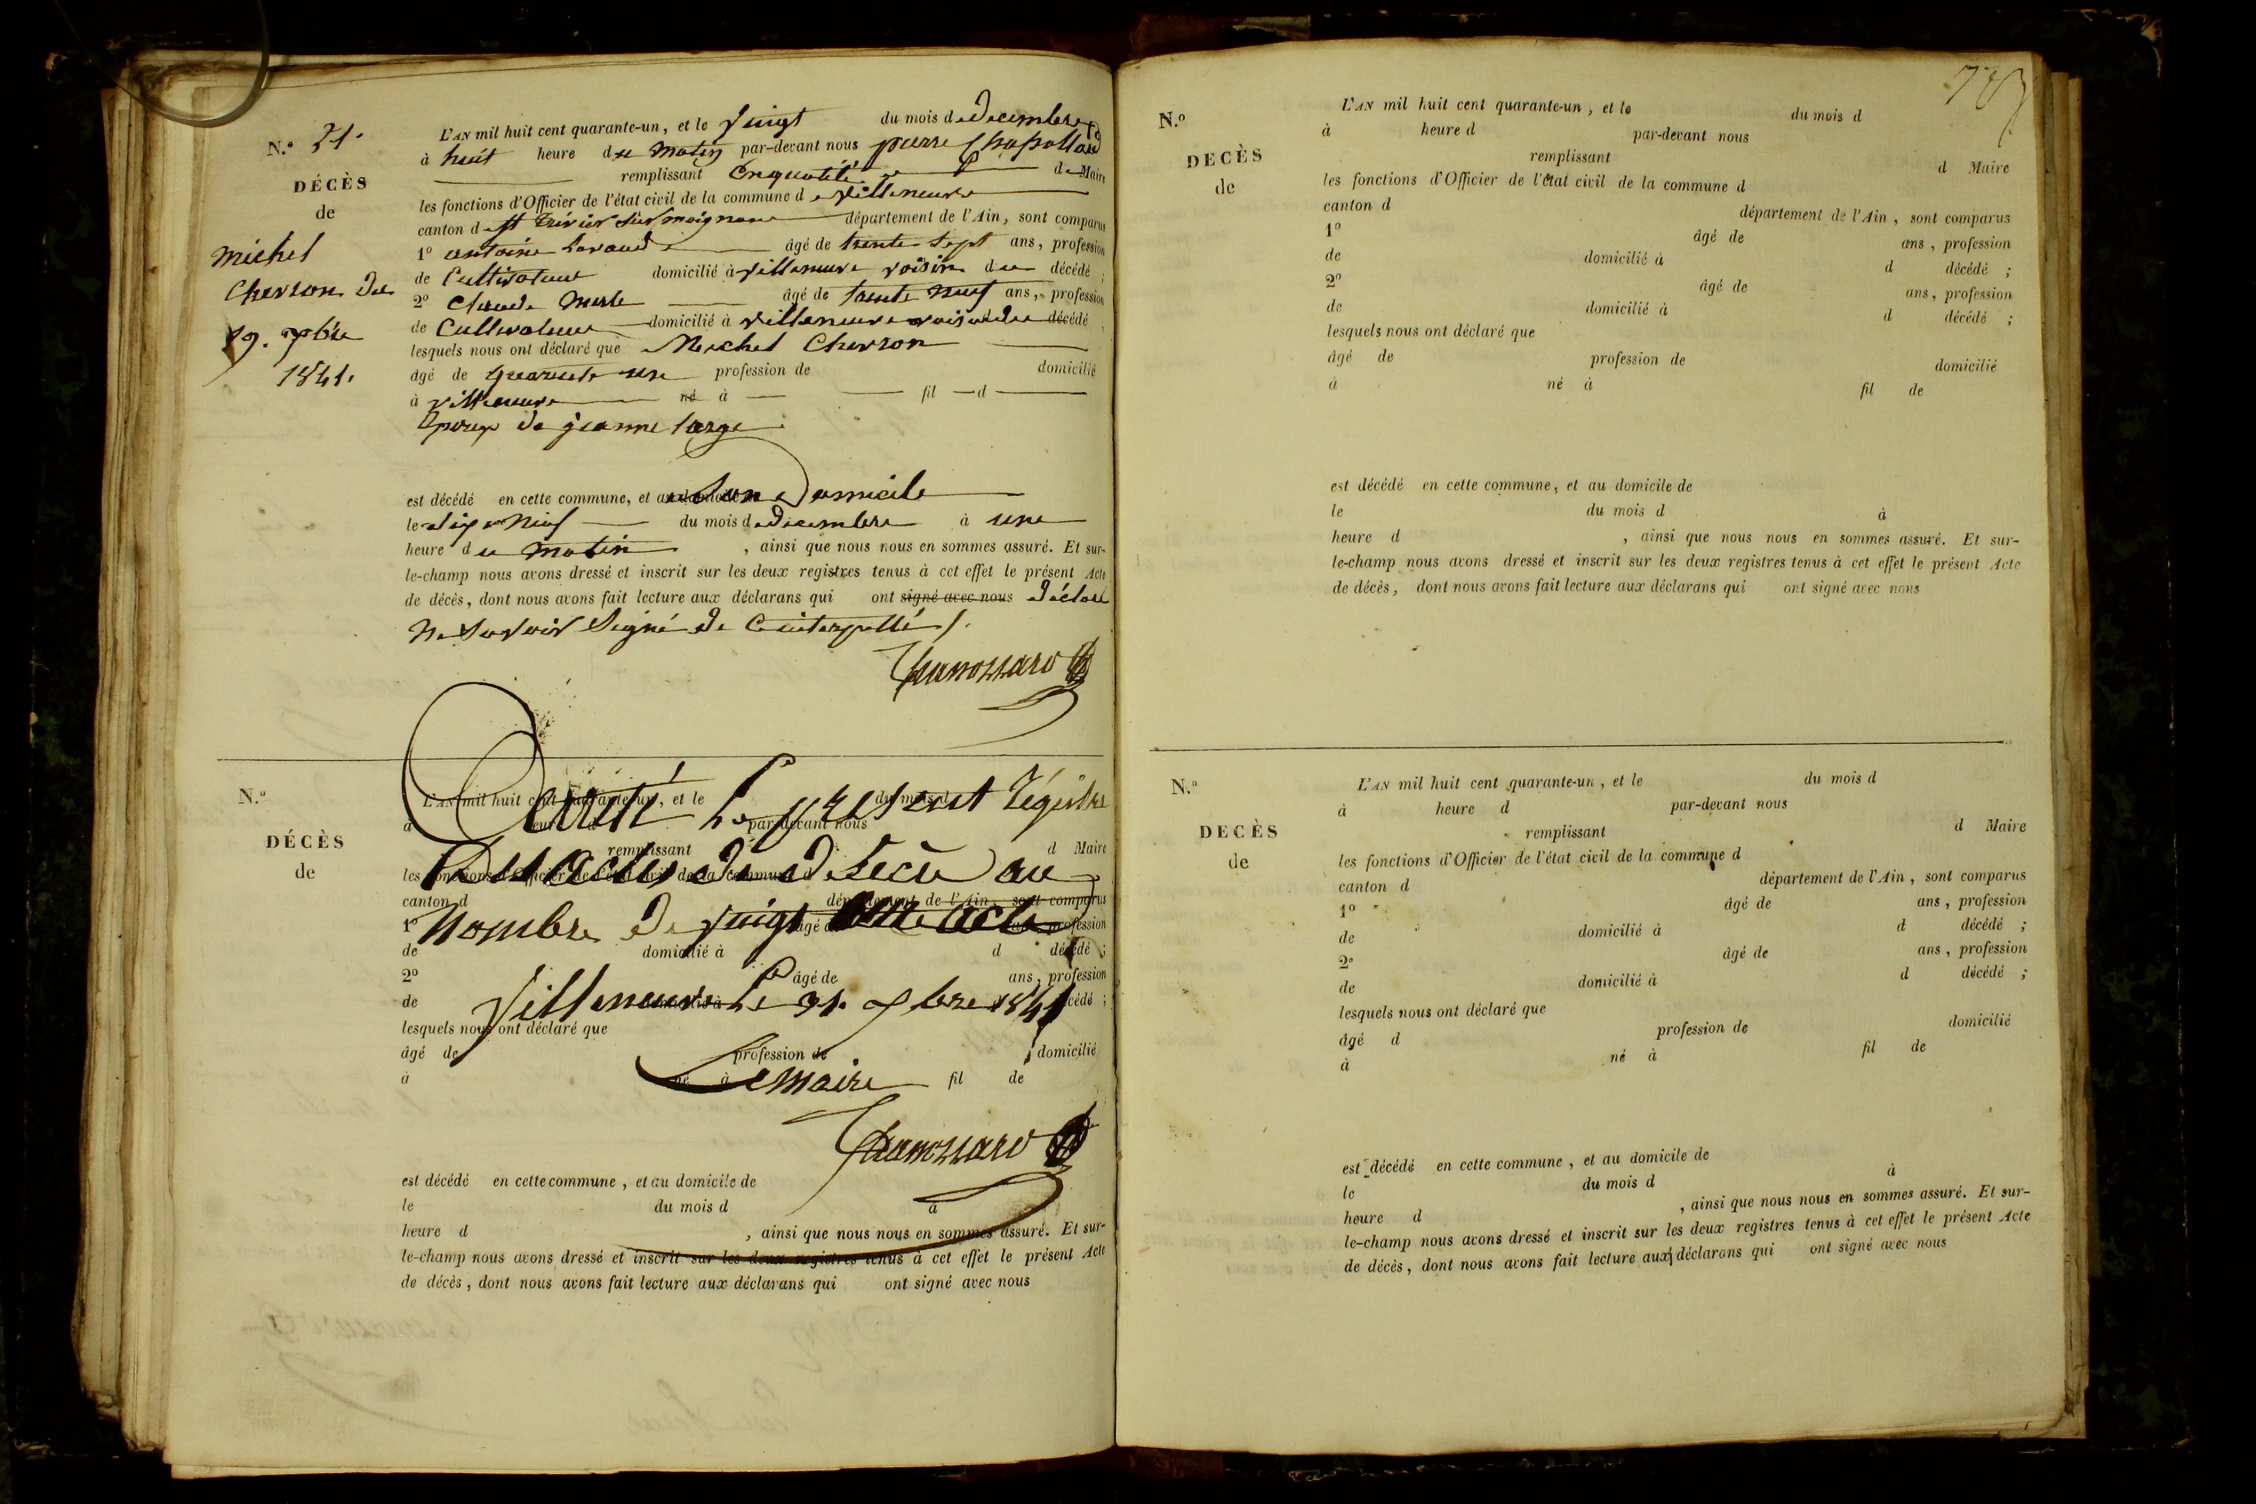 N.o 21.
DÉCÈS
de
Michel
Cherson du
19. xbre
1841.
L'AN mil huit cent quarante-un, et le vingt du mois de decembre
à huit heure du matin par-devant nous pierre
remplissant en qualité de Maire
les fonctions d'Officier de l'état civil de la commune de villeneuve
canton de st trivier sur moignans département de l'Ain, sont comparus
1o antoine âgé de trente sept ans, profession
de Cultivateur domicilié à villeneuve voisin du décédé ;
2o Claude Merle âgé de trente neuf ans, profession
de Cultivateur domicilié à villeneuve voisin du décédé ;
lesquels nous ont déclaré que Michel Cherson
âgé de quarante un profession de domicilié
à villeneuve né à fil d
Epoux de jeanne large
est décédé en cette commune, et au domicile de son Domicile
le dix neuf du mois de decembre à une
heure du matin , ainsi que nous nous en sommes assuré. Et sur-
le-champ nous avons dressé et inscrit sur les deux registres tenus à cet effet le présent Acte
de décès, dont nous avons fait lecture aux déclarans qui ont signé avec nous déclaré
Ne savoir signé de ce interpellé ./.
N.o
DÉCÈS
de
L'AN mil huit cent quarante-un, et le du mois d
à heure d par-devant nous
remplissant d Maire
les fonctions d'Officier de l'état civil de la commune d
canton d département de l'Ain, sont comparus
1o âgé de ans, profession
de domicilié à d décédé ;
2o âgé de ans, profession
de domicilié à d décédé ;
lesquels nous ont déclaré que
âgé de profession de domicilié
à né à fil de
le present régistre
Des actes de Décès au
Nombre de vingt une acte
Villeneuve le 31. xbre 1841
Le maire
est décédé en cette commune, et au domicile de
le du mois d à
heure d , ainsi que nous nous en sommes assuré. Et sur-
le-champ nous avons dressé et inscrit sur les deux registres tenus à cet effet le présent Acte
de décès, dont nous avons fait lecture aux déclarans qui ont signé avec nous
N.o
DECÈS
de
L'AN mil huit cent quarante-un, et le du mois d
à heure d par-devant nous
remplissant d Maire
les fonctions d'Officier de l'état civil de la commune d
canton d département de l'Ain, sont comparus
1o âgé de ans, profession
de domicilié à d décédé ;
2o âgé de ans, profession
de domicilié à d décédé ;
lesquels nous ont déclaré que
âgé de profession de domicilié
à né à fil de
est décédé en cette commune, et au domicile de
le du mois d à
heure d , ainsi que nous nous en sommes assuré. Et sur-
le-champ nous avons dressé et inscrit sur les deux registres tenus à cet effet le présent Acte
de décès, dont nous avons fait lecture aux déclarans qui ont signé avec nous
N.o
DECÈS
de
L'AN mil huit cent quarante-un, et le du mois d
à heure d par-devant nous
remplissant d Maire
les fonctions d'Officier de l'état civil de la commune d
canton d département de l'Ain, sont comparus
1o âgé de ans, profession
de domicilié à d décédé ;
2o âgé de ans, profession
de domicilié à d décédé ;
lesquels nous ont déclaré que
âgé d profession de domicilié
à né à fil de
est décédé en cette commune, et au domicile de
le du mois d à
heure d , ainsi que nous nous en sommes assuré. Et sur-
le-champ nous avons dressé et inscrit sur les deux registres tenus à cet effet le présent Acte
de décès, dont nous avons fait lecture aux déclarans qui ont signé avec nous